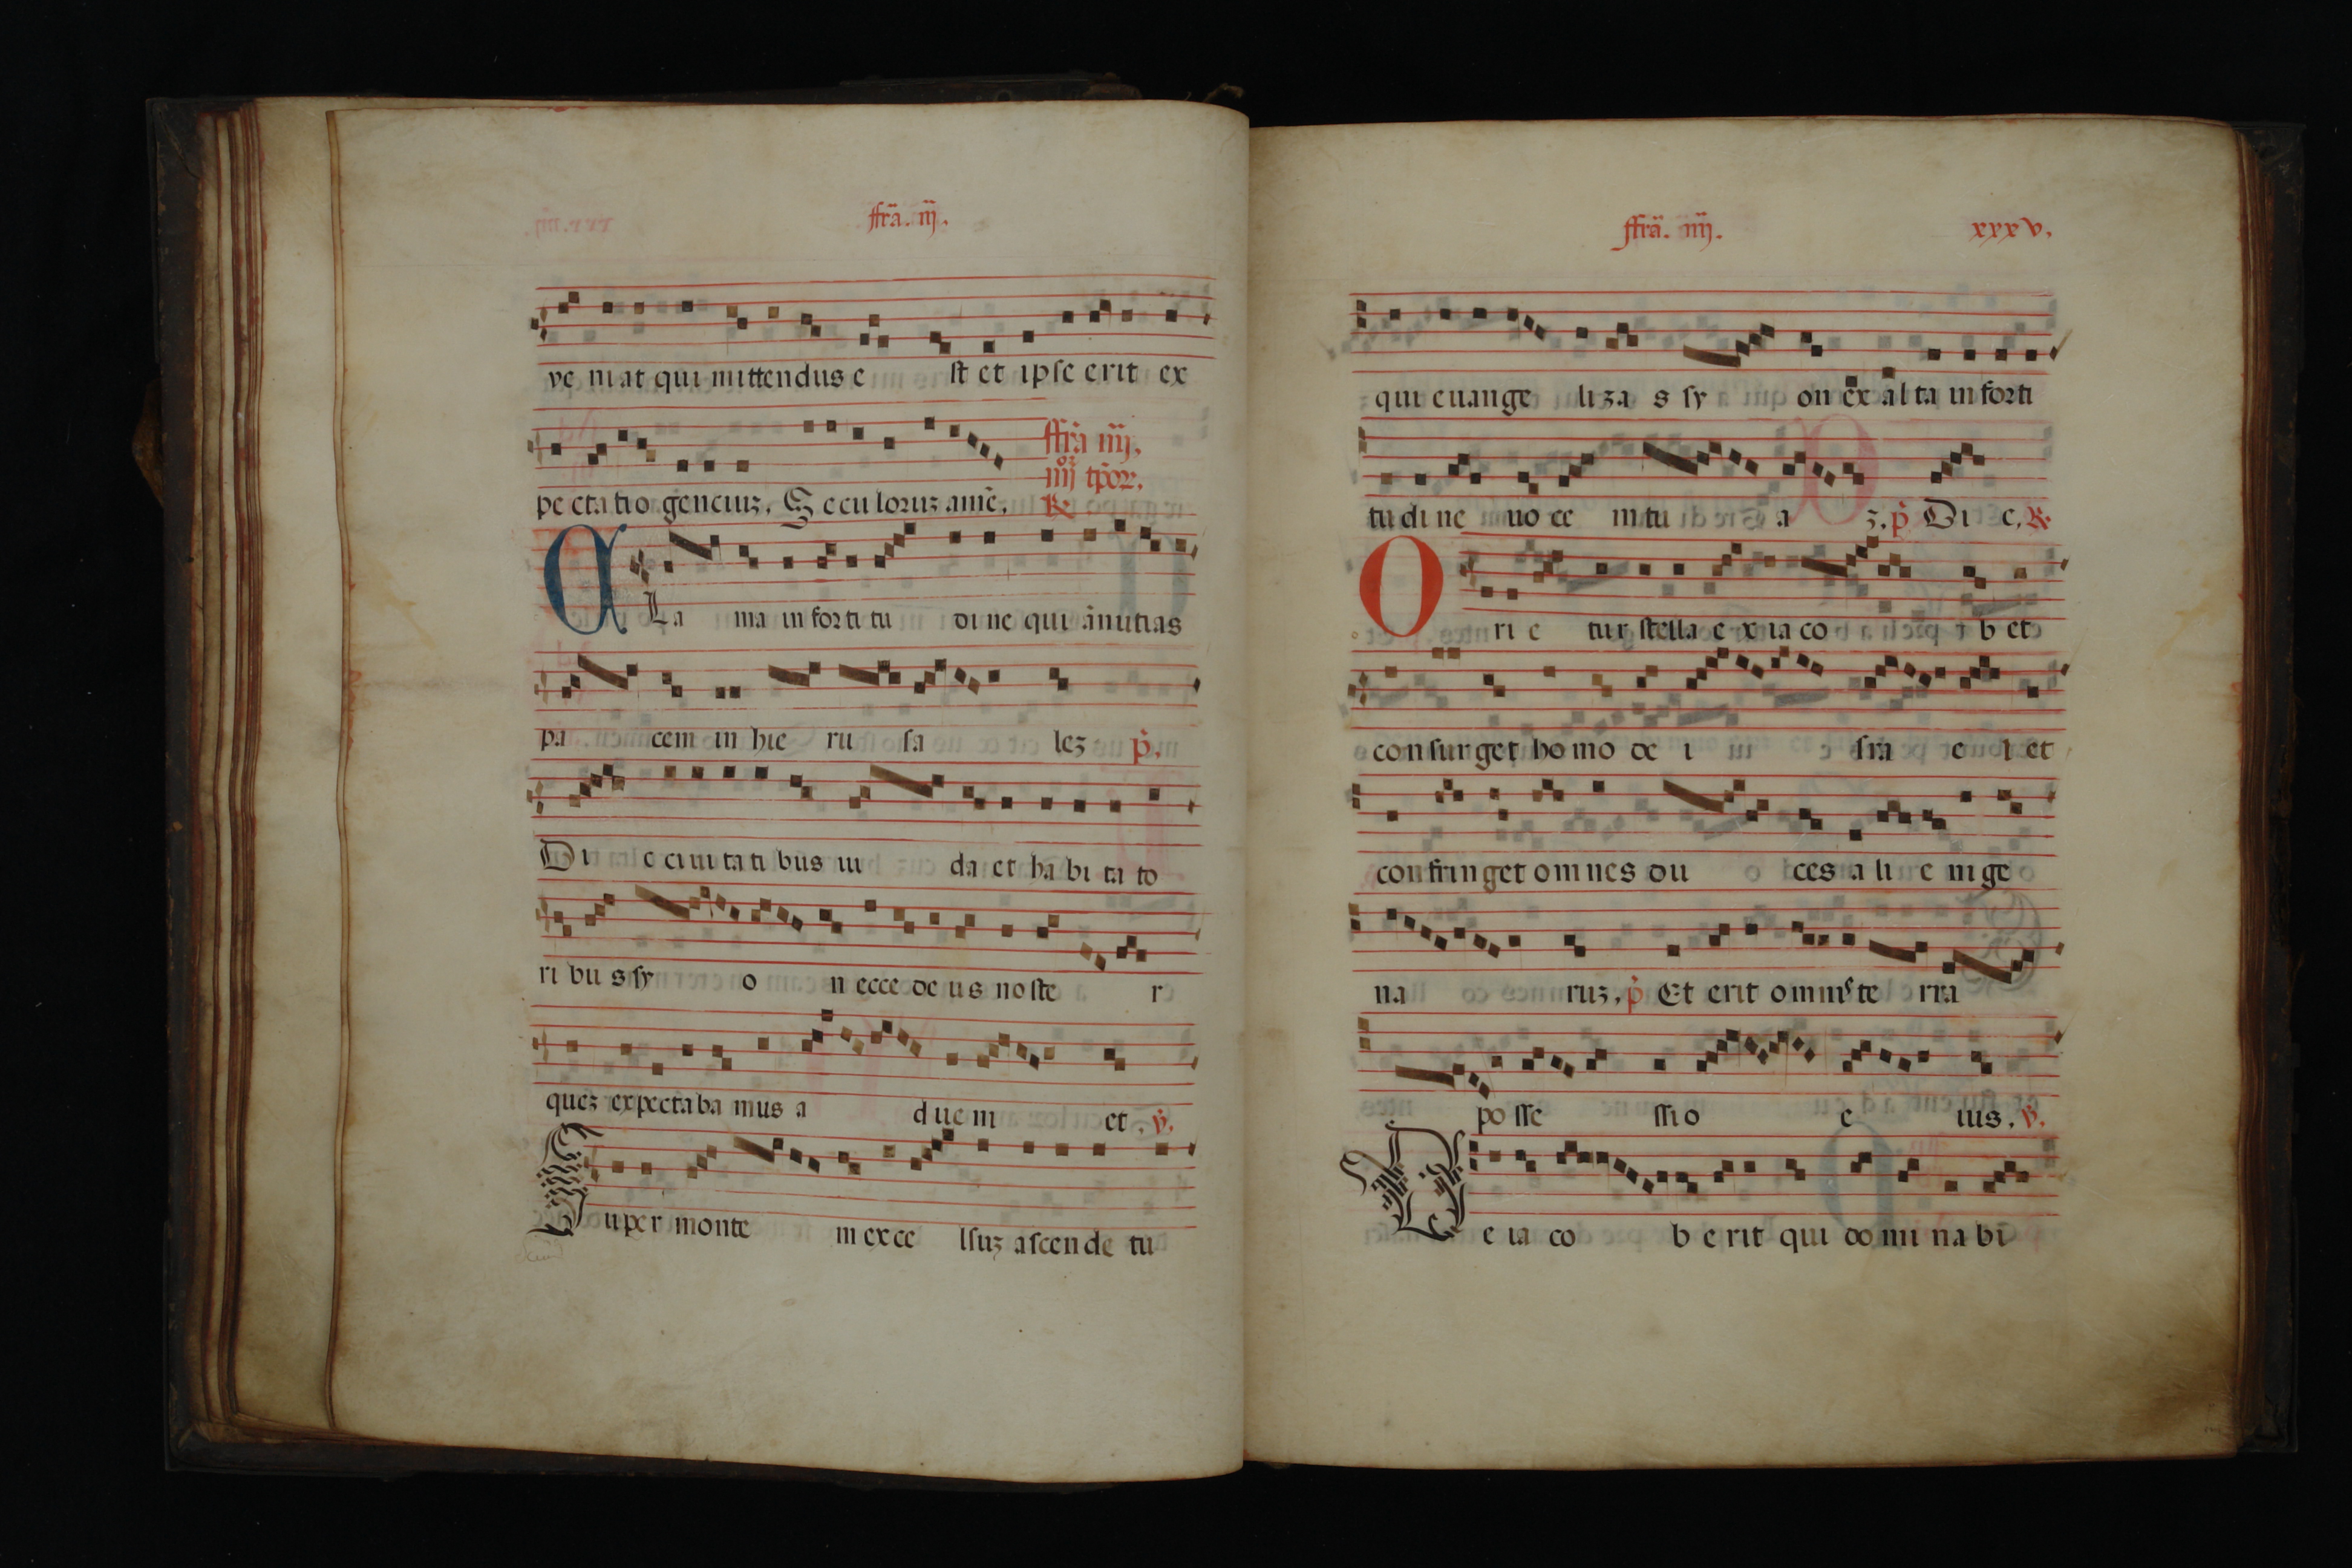 ffrã. iij.
ve ni at qui mittendus e st et ipse erit ex
pe cta ti o genciuz. Seculoruz amẽ. ffrã iiij.
iiij tp̃oꝝ.
℟
ALa ma in forti tu di ne qui ãnutias
pa cem in hie ru sa lez p̃.
Di c ciui ta ti bus iu da et ha bi ta to
ri bu s sy o n ecce de us no ste r
quez expecta ba mus a d ue m et. ℣.
Super monte m exce lsuz ascende tu
ffrã. iiij. xxxv.
qui euange li za s sy on ex al ta in forti
tu di ne uo ce m tu a z. p̃ Di c. ℟
O ri e tur stella e x ia co b et
consur get ho mo de i sra e l et
confrin get om nes du ces a li e ni ge
na ruz. p̃ Et erit omnis te rra
po sse ssi o e ius. ℣.
De ia co b e rit qui do mi na bi